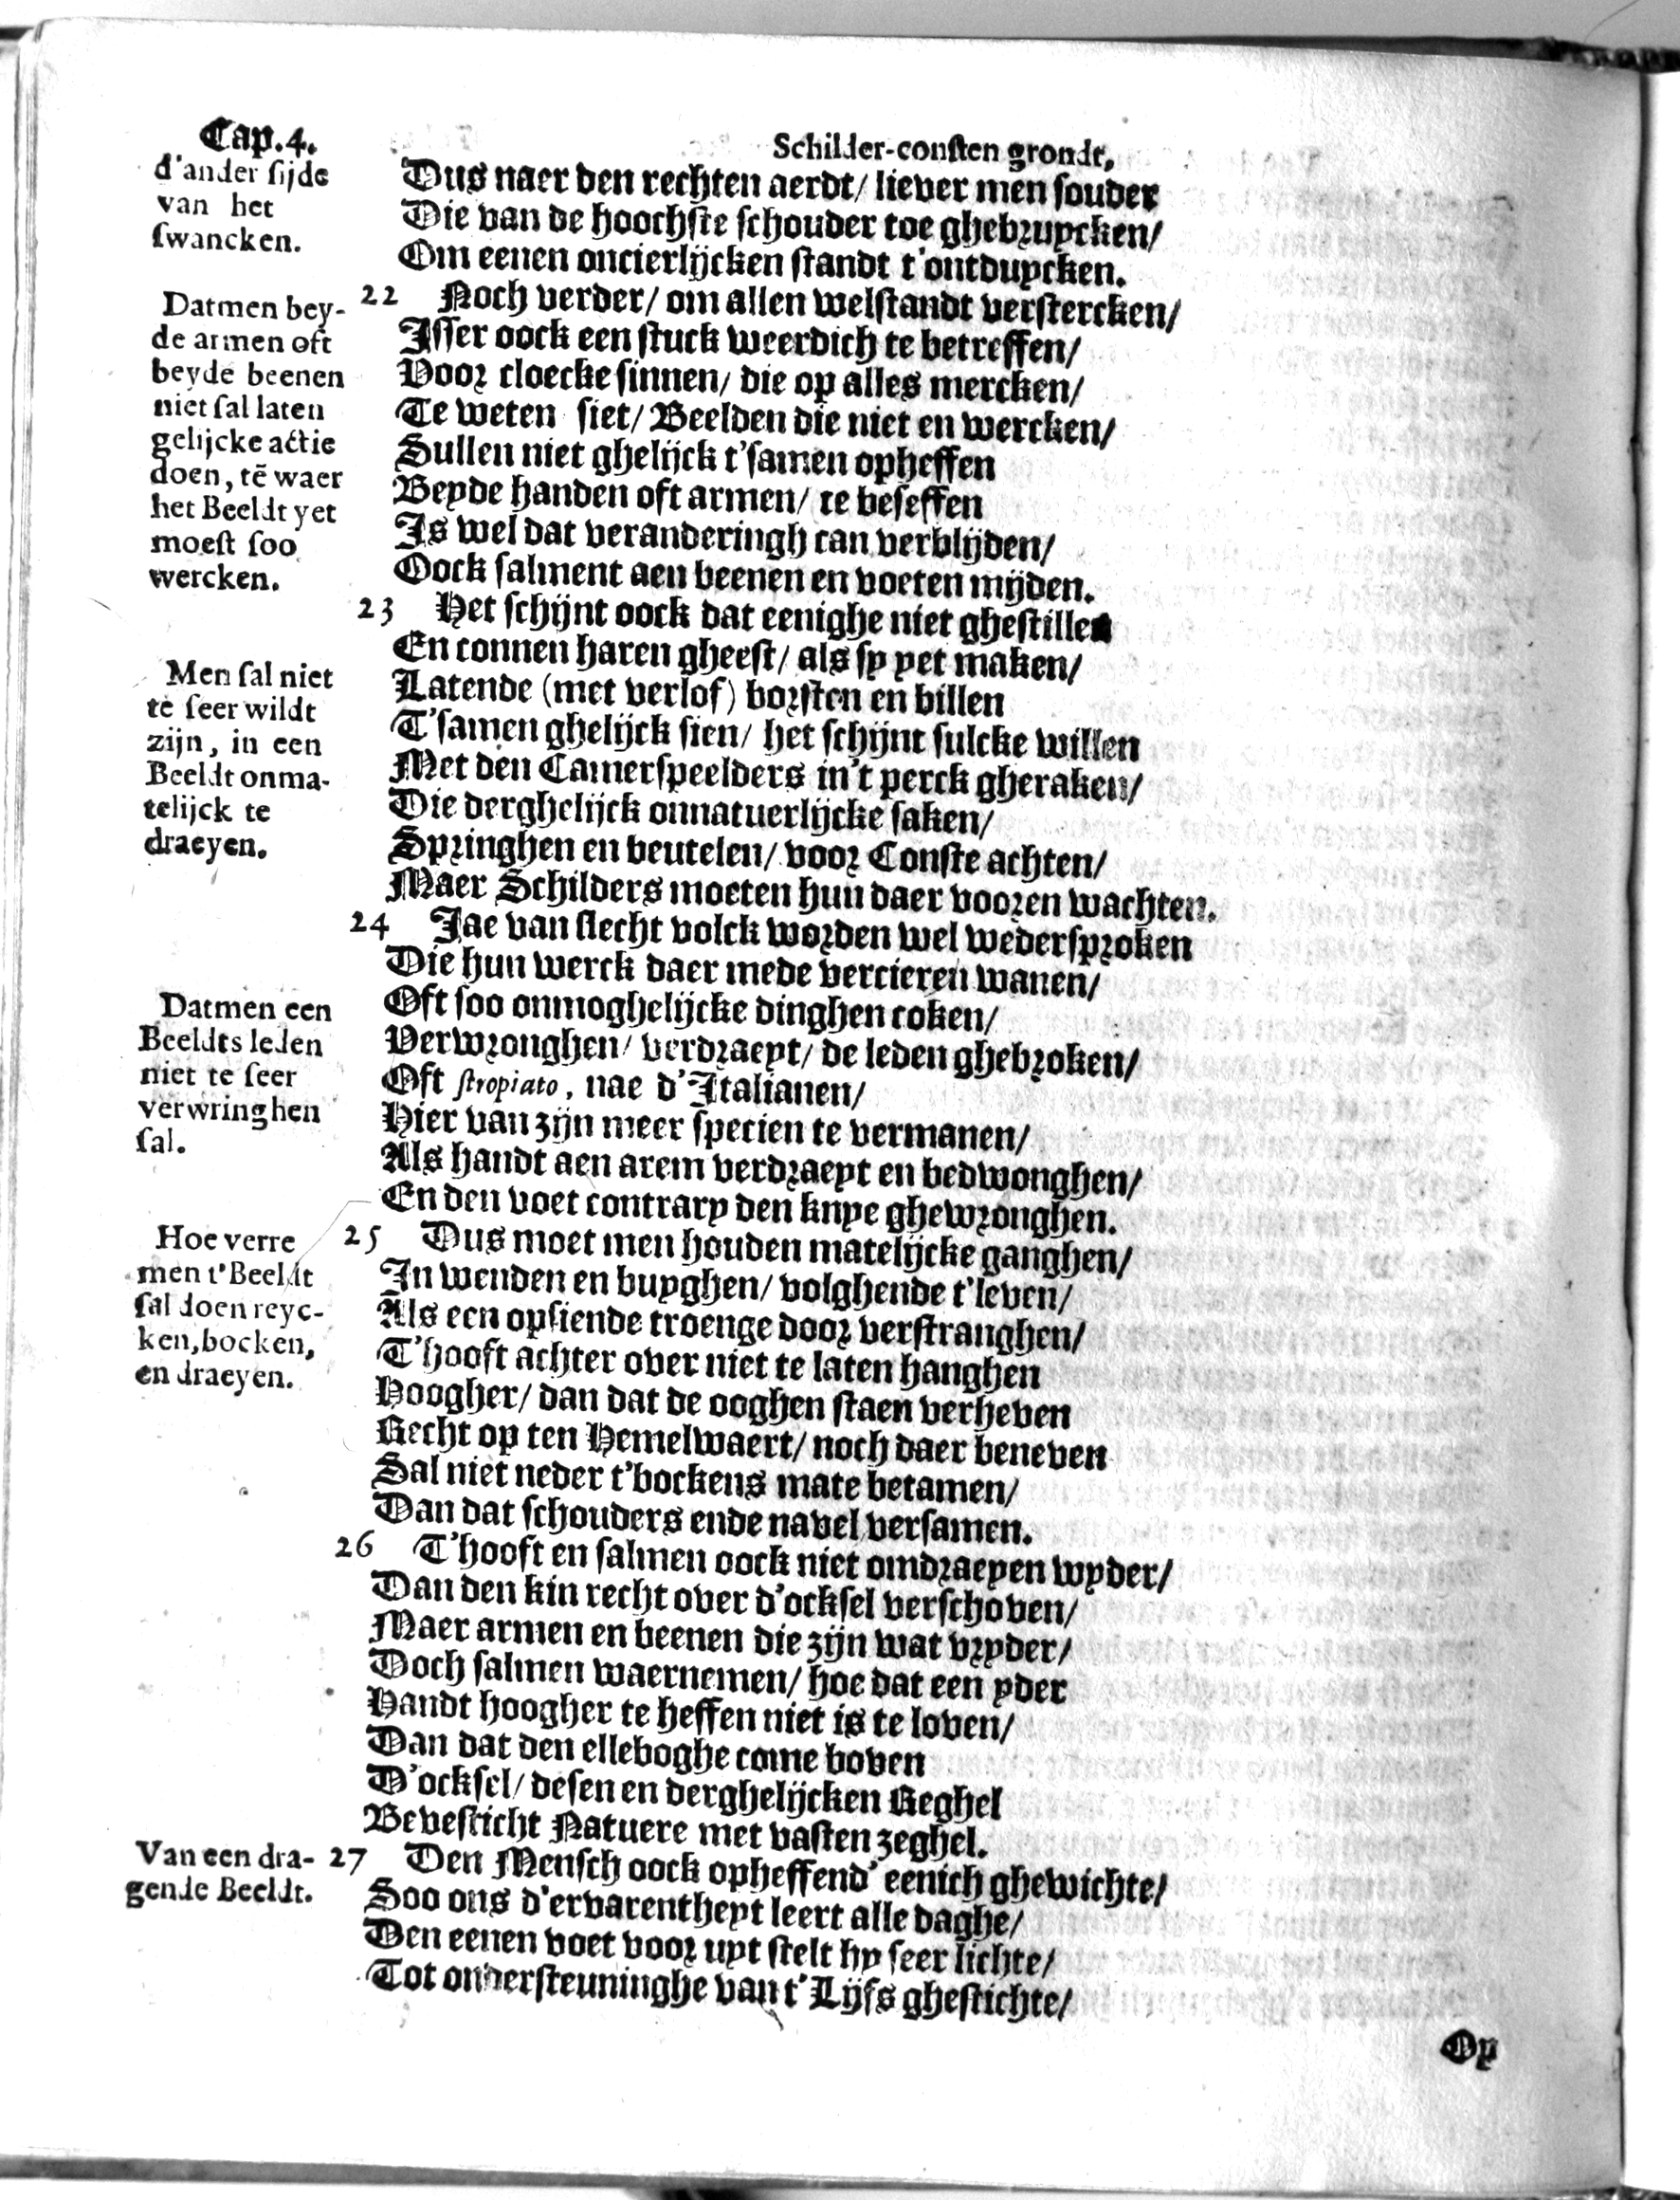 Cap.4.
Schilder-consten grondt,
d'ander sijde
van het
swancken.
Dus naer den rechten aerdt/ liever men souder
Die van de hoochste schouder toe ghebruycken/
Om eenen oncierlijcken standt t'ontduycken.
Datmen bey-
de armen oft
beyde beenen
niet sal laten
gelijcke actie
doen, tẽ waer
het Beeldt yet
moest soo
wercken.
22 Noch verder/ om allen welstandt verstercken/
Isser oock een stuck weerdich te betreffen/
Voor cloecke sinnen/ die op alles mercken/
Te weten siet/ Beelden die niet en wercken/
Sullen niet ghelijck t'samen opheffen
Beyde handen oft armen/ te beseffen
Is wel dat veranderingh can verblijden/
Oock salment aen beenen en voeten mijden.
Men sal niet
te seer wildt
zijn, in een
Beeldt onma-
telijck te
draeyen.
23 Het schijnt oock dat eenighe niet ghestillen
En connen haren gheest/ als sy yet maken/
Latende (met verlof) borsten en billen
T'samen ghelijck sien/ het schijnt sulcke willen
Met den Camerspeelders in't perck gheraken/
Die derghelijck onnatuerlijcke saken/
Springhen en beutelen/ voor Conste achten/
Maer Schilders moeten hun daer vooren wachten.
Datmen een
Beeldts leden
niet te seer
verwringhen
sal.
24 Jae van slecht volck worden wel wedersproken
Die hun werck daer mede vercieren wanen/
Oft soo onmoghelijcke dinghen coken/
Verwronghen/ verdraeyt/ de leden ghebroken/
Oft stropiato, nae d'Italianen/
Hier van zijn meer specien te vermanen/
Als handt aen arem verdraeyt en bedwonghen/
En den voet contrary den knye ghewronghen.
Hoe verre
men t'Beeldt
sal doen reyc-
ken, bocken,
en draeyen.
25 Dus moet men houden matelijcke ganghen/
In wenden en buyghen/ volghende t'leven/
Als een opsiende troenge door verstranghen/
T'hooft achter over niet te laten hanghen
Hoogher/ dan dat de ooghen staen verheven
Recht op ten Hemelwaert/ noch daer beneven
Sal niet neder t'bockens mate betamen/
Dan dat schouders ende navel versamen.
26 T'hooft en salmen oock niet omdraeyen wyder/
Dan den kin recht over d'ocksel verschoven/
Maer armen en beenen die zijn wat vryder/
Doch salmen waernemen/ hoe dat een yder
Handt hoogher te heffen niet is te loven/
Dan dat den elleboghe come boven
D'ocksel/ desen en derghelijcken Reghel
Bevesticht Natuere met vasten zeghel.
Van een dra-
gende Beeldt.
27 Den Mensch oock opheffend' eenich ghewichte/
Soo ons d'ervarentheyt leert alle daghe/
Den eenen voet voor uyt stelt hy seer lichte/
Tot ondersteuninghe van t' Lijfs ghestichte/
Op